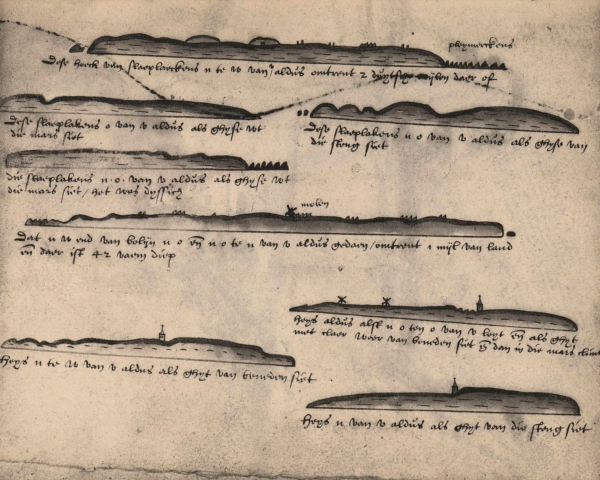 pleymerckens
Dese hoeck van slaeplaeckens n te w van v aldus omtrent 2 duytsche mijlen daer of
Dese slaeplakens o van v aldus als ghyse wt
die mars siet
Dese slaeplakens n o van v aldus als ghyse van
die steng siet
die slaeplakens n.o. van v aldus als ghyse wt
die mars siet / het was dyssich
molen
Dat n w end van bolijn n o en n o te n van v aldus gedaen / omtrent 1 mijl van land
en daer ist 42 vaem diep
heys aldus alst n o ten o van v leyt en als ghyt
met claer weer van beneden siet dan in die mars
Heys n te w van v aldus als ghyt van beneden siet
Heys n van v aldus als ghyt van die steng siet